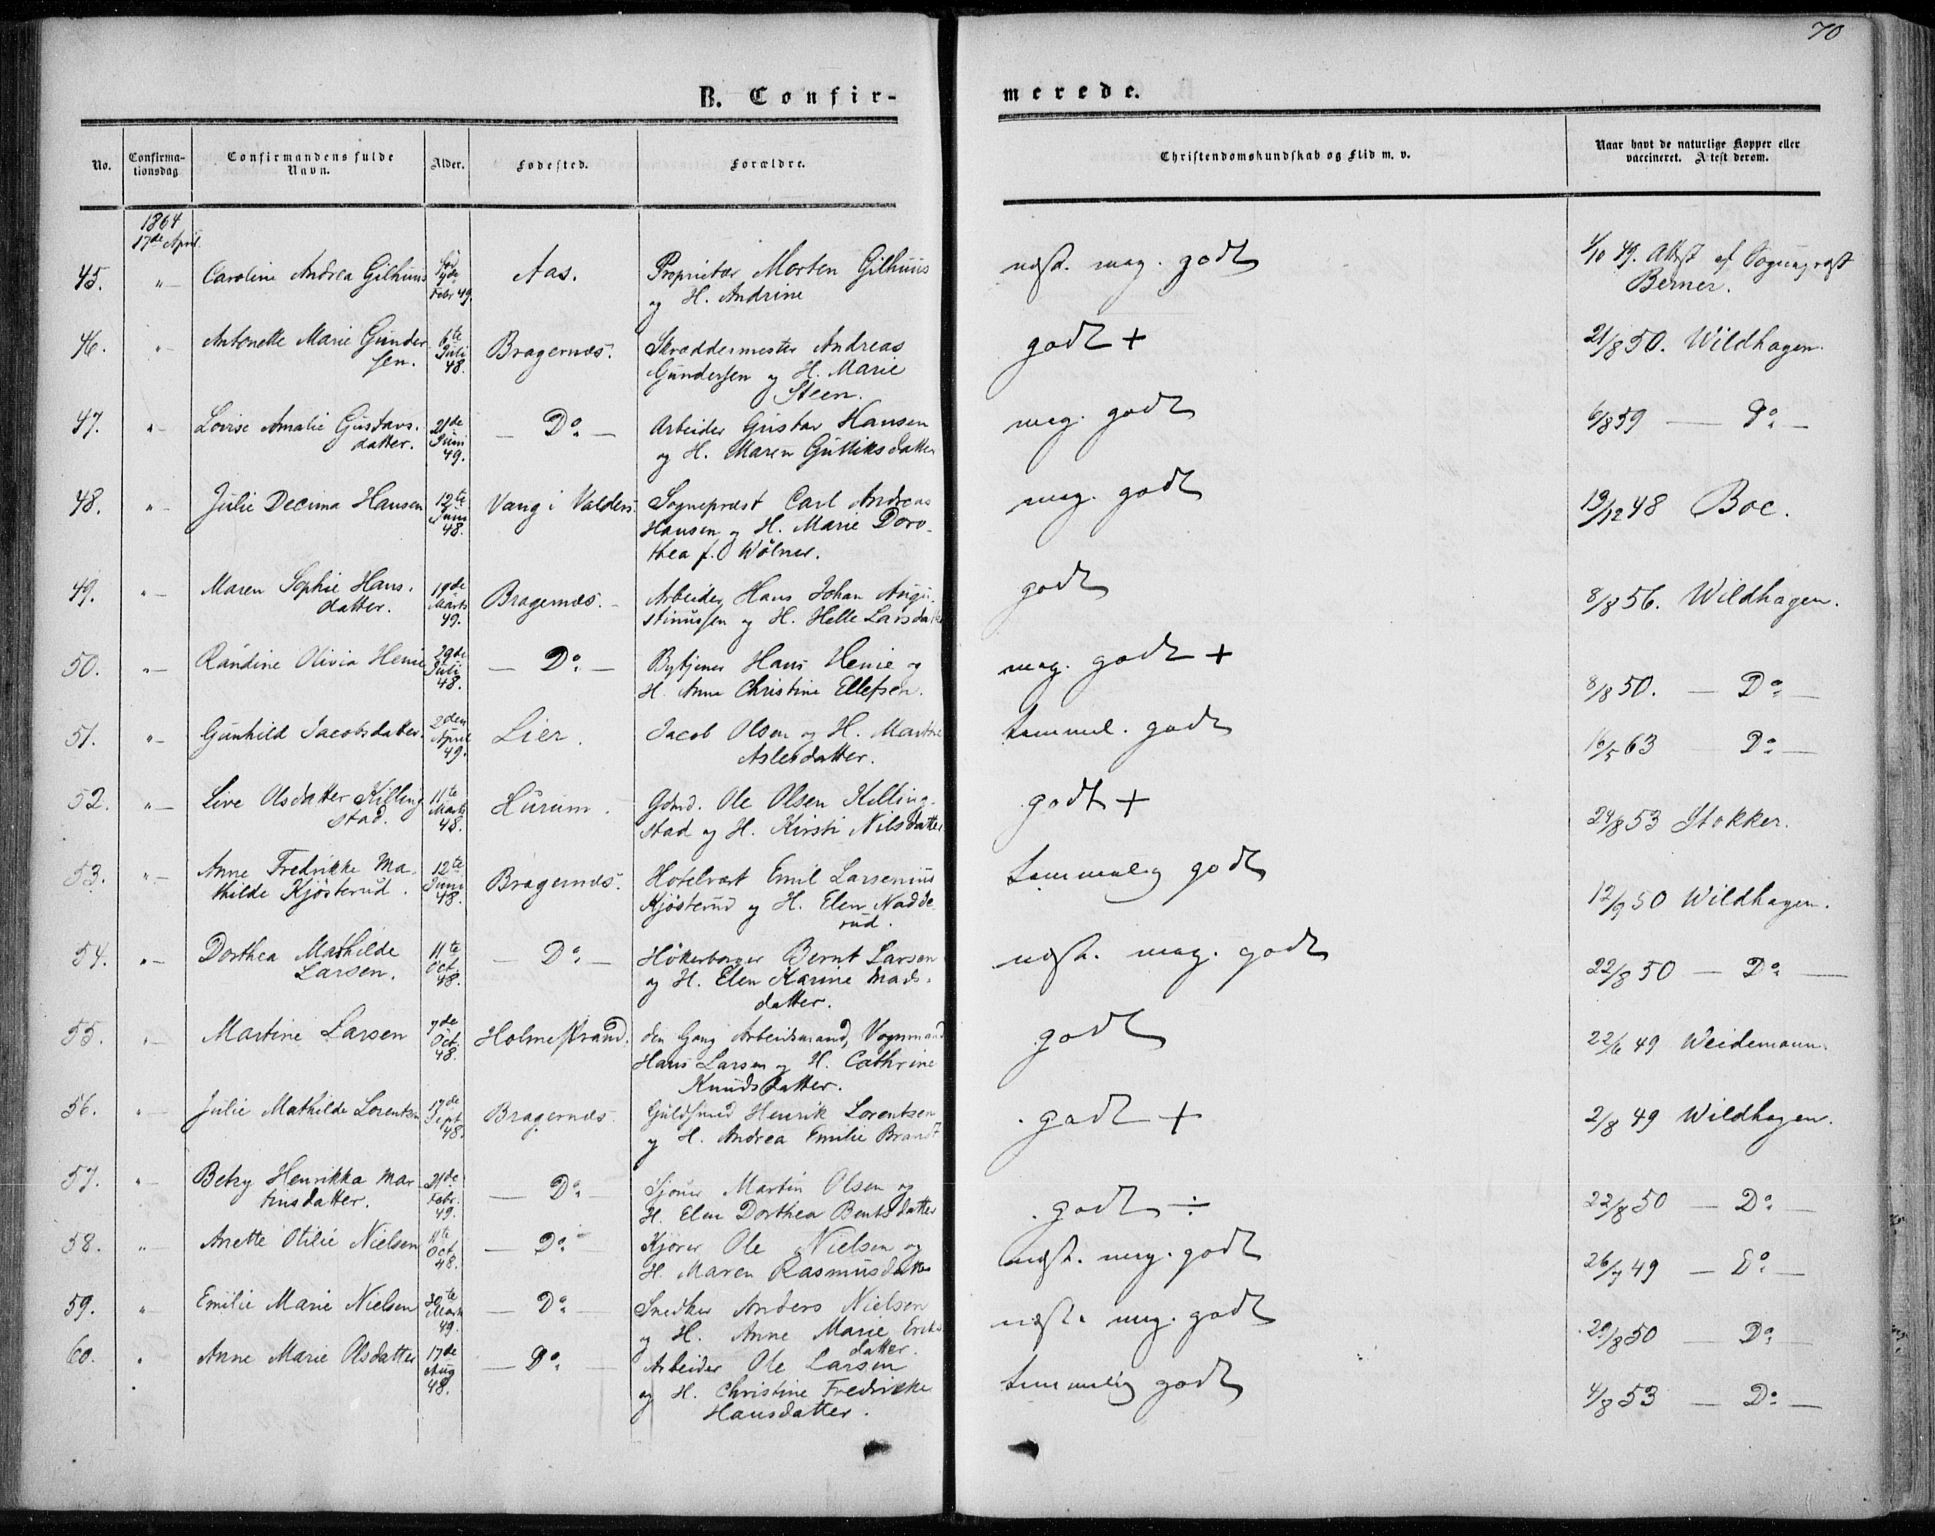 70
B. Confir-
merede.
No.
Confirma-
tionsdag
Confirmandens fulde
Navn.
Alder.
Fødested.
Forældre.
Christendomskundskab og Flid m. v.
Naar havt de naturlige Kopper eller
vaccineret. Attest derom.
1864
17de April.
45. "— Caroline Andrea Gilhuus Aas. Proprietær Morten Gilhuus næst. meg. godt 1/10 49. Attest af Sognepræst
Febr 49. og H. Andrine Berner.
46. " Antonette Marie Gunder- 6te Bragernæs. Skræddermester Andreas godt + 21/8 50. Wildhagen.
sen. Juli Gundersen og H. Marie
48. Steen.
47. " Lovise Amalie Gustavs- 21de — Do. — Arbeider Gustav Hansen meg. godt 6/8 59 — Do —
datter. Juni og H. Maren Gulliksdatter
49.
48. "- Julie Decima Hansen 12te Vang i Valders Sognepræst Carl Andreas meg. godt 19/12 48 Boe.
Juni Hansen og H. Marie Doro-
48. thea f. Wölner.
49. "- Maren Sophie Hans- 19de Bragernæs. Arbeider Hans Johan Augu- godt 8/8 56. Wildhagen.
datter. Marts stinussen og H. Helle Larsdatter
49.
50. "- Randine Olivia Henie 29de — Do. — Bytjener Hans Henie og meg. godt + 8/8 50. — Do. —
Juli H. Anne Christine Ellefsen.
48.
51. "- Gunhild Jacobsdatter. 2den Lier. Jacob Olsen og H. Marthe temmel. godt 16/5 63 Do. —
April Aslesdatter.
49.
52. "— Live Olsdatter Killing 11te Hurum. Gdmd. Ole Olsen Killing- godt + 24/8 53 Stokker.
stad. Marts stad og H. Kirsti Nilsdatter
48.
53. "- Anne Fredrikke Ma- 12te Bragernæs. Hotelvært Emil Larsenius temmelig godt 12/9 50 Wildhagen.
thilde Kjøsterud. Juni Kjøsterud og H. Elen Nadde-
48. rud.
54. "- Dorthea Mathilde 11te — Do. — Høkerborger Bernt Larsen næst. meg. godt 22/8 50 — Do. —
Larsen. Oct. og H. Elen Karine Mads-
48. datter.
55. "- Martine Larsen 7de Holmestrand. den Gang Arbeidsmand, Vognmand godt 22/6 49 Weidemann.
Oct. Hans Larsen og H. Cathrine
48. Knudsdatter.
56. " Julie Mathilde Lorentzen 17de Bragernæs Guldsmed Henrik Lorentsen godt + 2/8 49 Wildhagen.
Sept. og H. Andrea Emilie Brandt
48.
57. " Betzy Henrikka Mar- 21de — Do. — Martin Olsen og godt ÷ 22/8 50 — Do. —
tinsdatter. Febr. H. Elen Dorthea Berntsdatter
49.
58. " Anette Otilie Nielsen 11te — Do. Kjører Ole Nielsen og næst. meg. godt 26/7 49 — Do —
Oct. H. Maren Rasmusdatter
48.
59. " Emilie Marie Nielsen 30te — Do. — Snedker Anders Nielsen næst. meg. godt 29/8 50 — Do. —
Marts og H. Anne Marie Eriks-
49. datter.
60. " Anne Marie Olsdatter 17de — Do. — Arbeider Ole Larsen temmelig godt 4/8 53 — Do. —
Aug og H. Christine Fredrikke
48. Hansdatter.